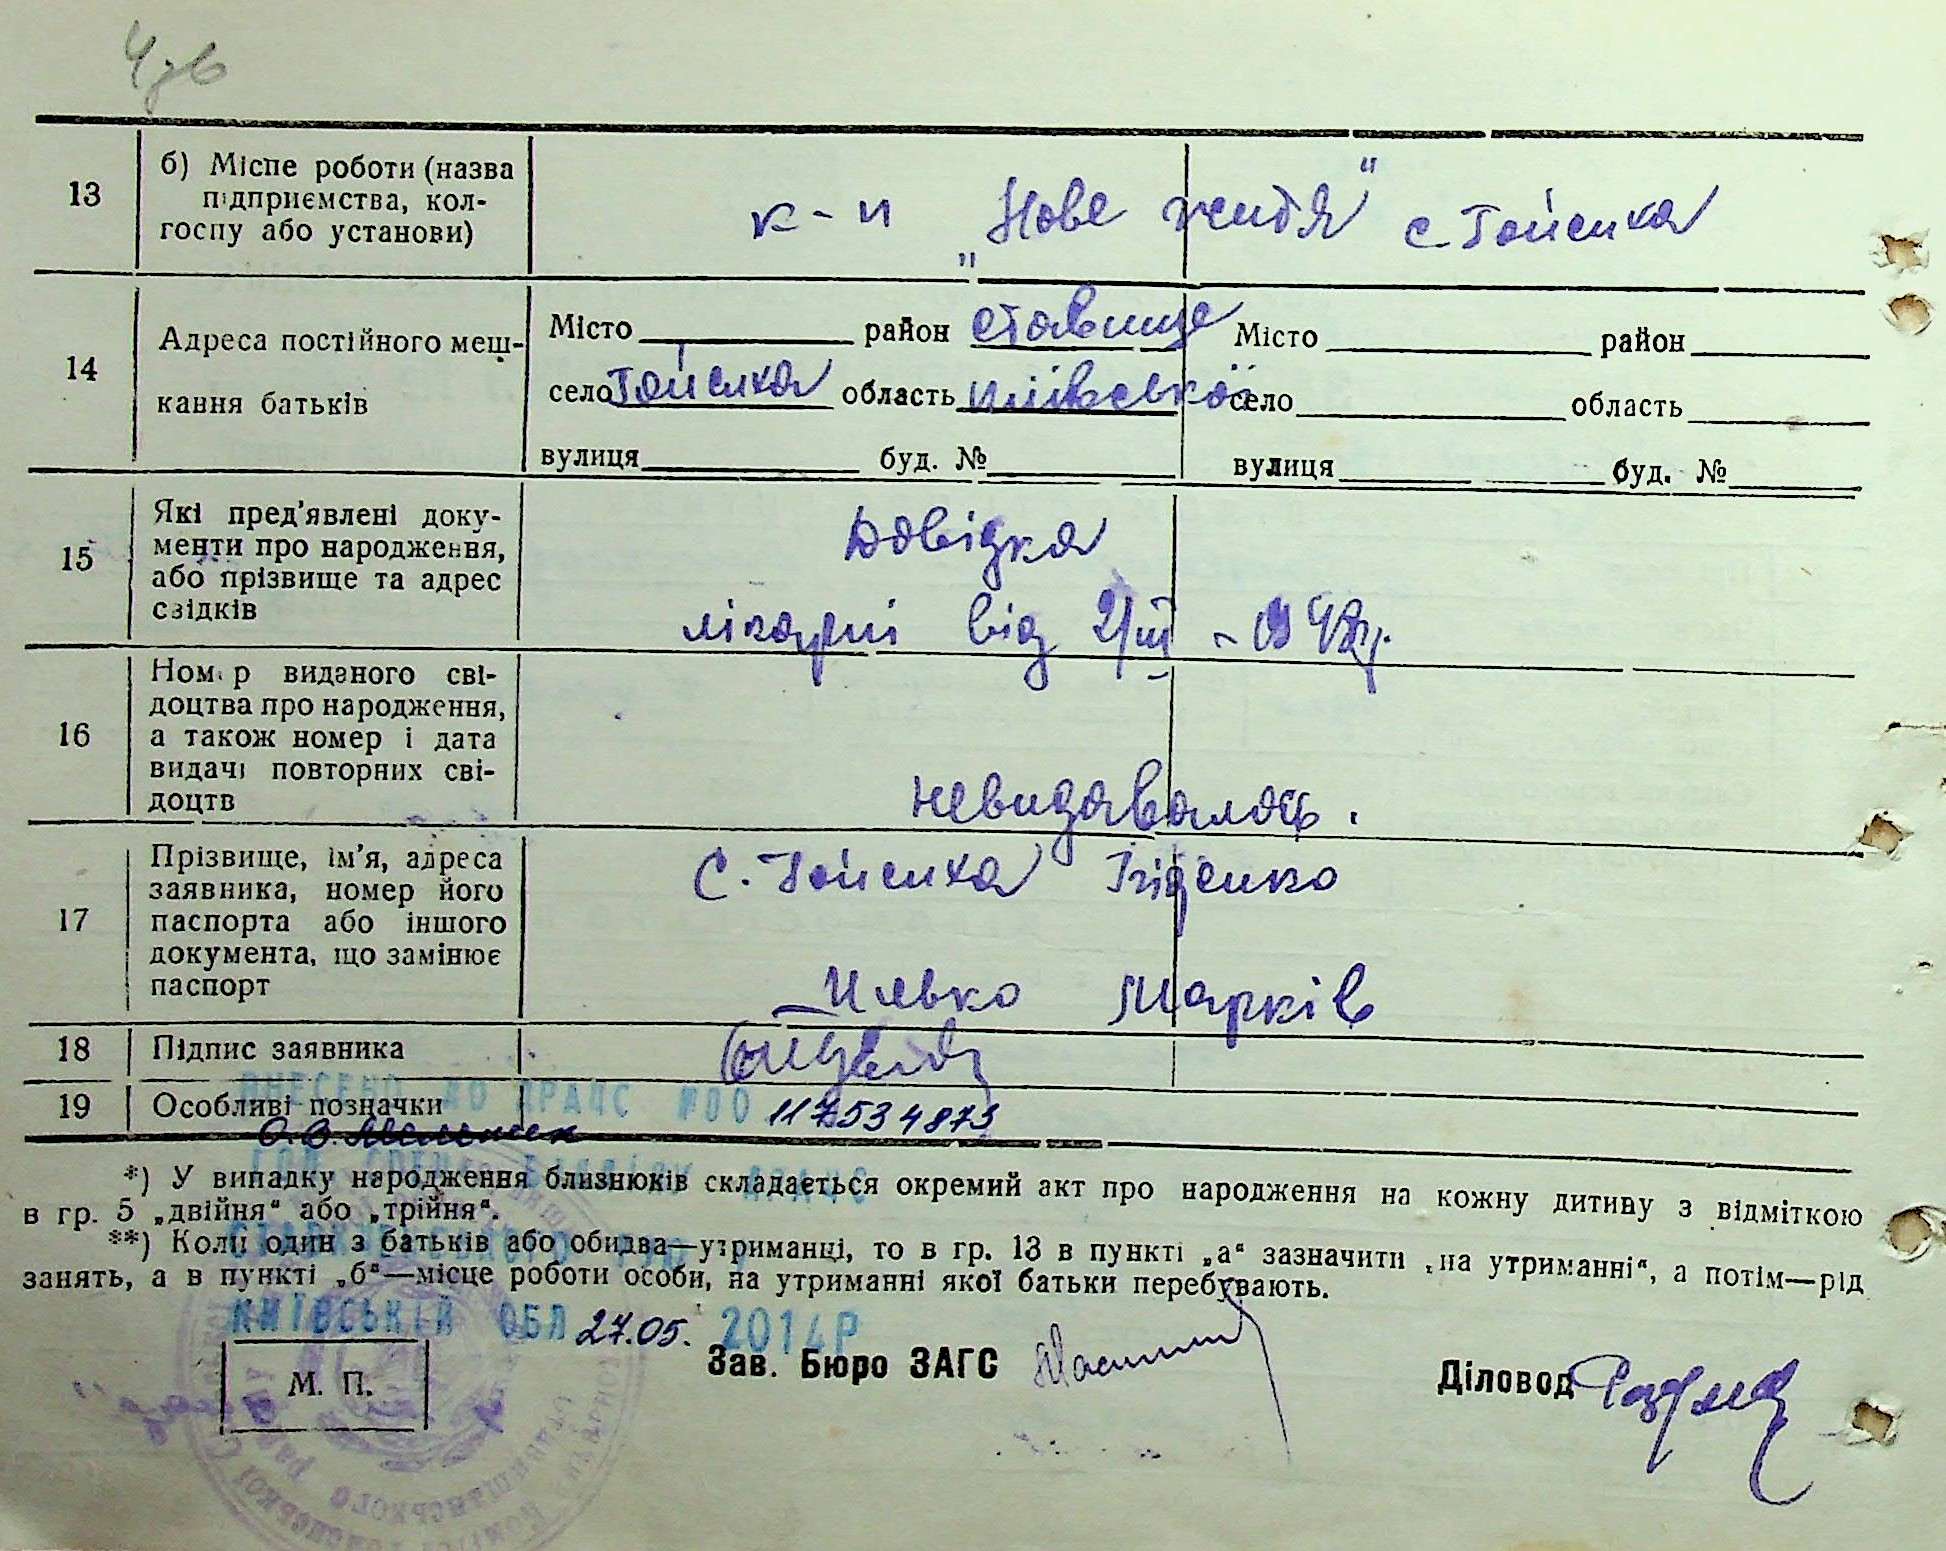 4зв
13 б) Місце роботи (назва підприємства, колгоспу або установи) к-п „Нове житя" с. Гойсиха
14 Адреса постійного мешкання батьків
Місто район Ставище Місто район
село Гойсиха область Київської село область
вулиця буд. № вулиця буд. №
15 Які пред'явлені документи про народження, або прізвище та адрес свідків
Довідка
лікарні від 2/III - 1948р.
16 Номер виданого свідоцтва про народження, а також номер і дата видачі повторних свідоцтв
невидавалось.
17 Прізвище, ім'я, адреса заявника, номер його паспорта або іншого документа, що замінює паспорт
с. Гойсиха
Илько Марків
18 Підпис заявника
19 Особливі позначки
ВНЕСЕНО ДО ДРАЦС №00 117534873
*) У випадку народження близнюків складається окремий акт про народження на кожну дитину з відміткою
в гр. 5 „двійня" або „трійня".
**) Коли один з батьків або обидва—утриманці, то в гр. 13 в пункті „а" зазначити „на утриманні", а потім—рід
занять, а в пункті „б"—місце роботи особи, на утриманні якої батьки перебувають.
КИЇВСЬКІЙ ОБЛ 27.05. 2014Р
М. П.
Зав. Бюро ЗАГС
Діловод